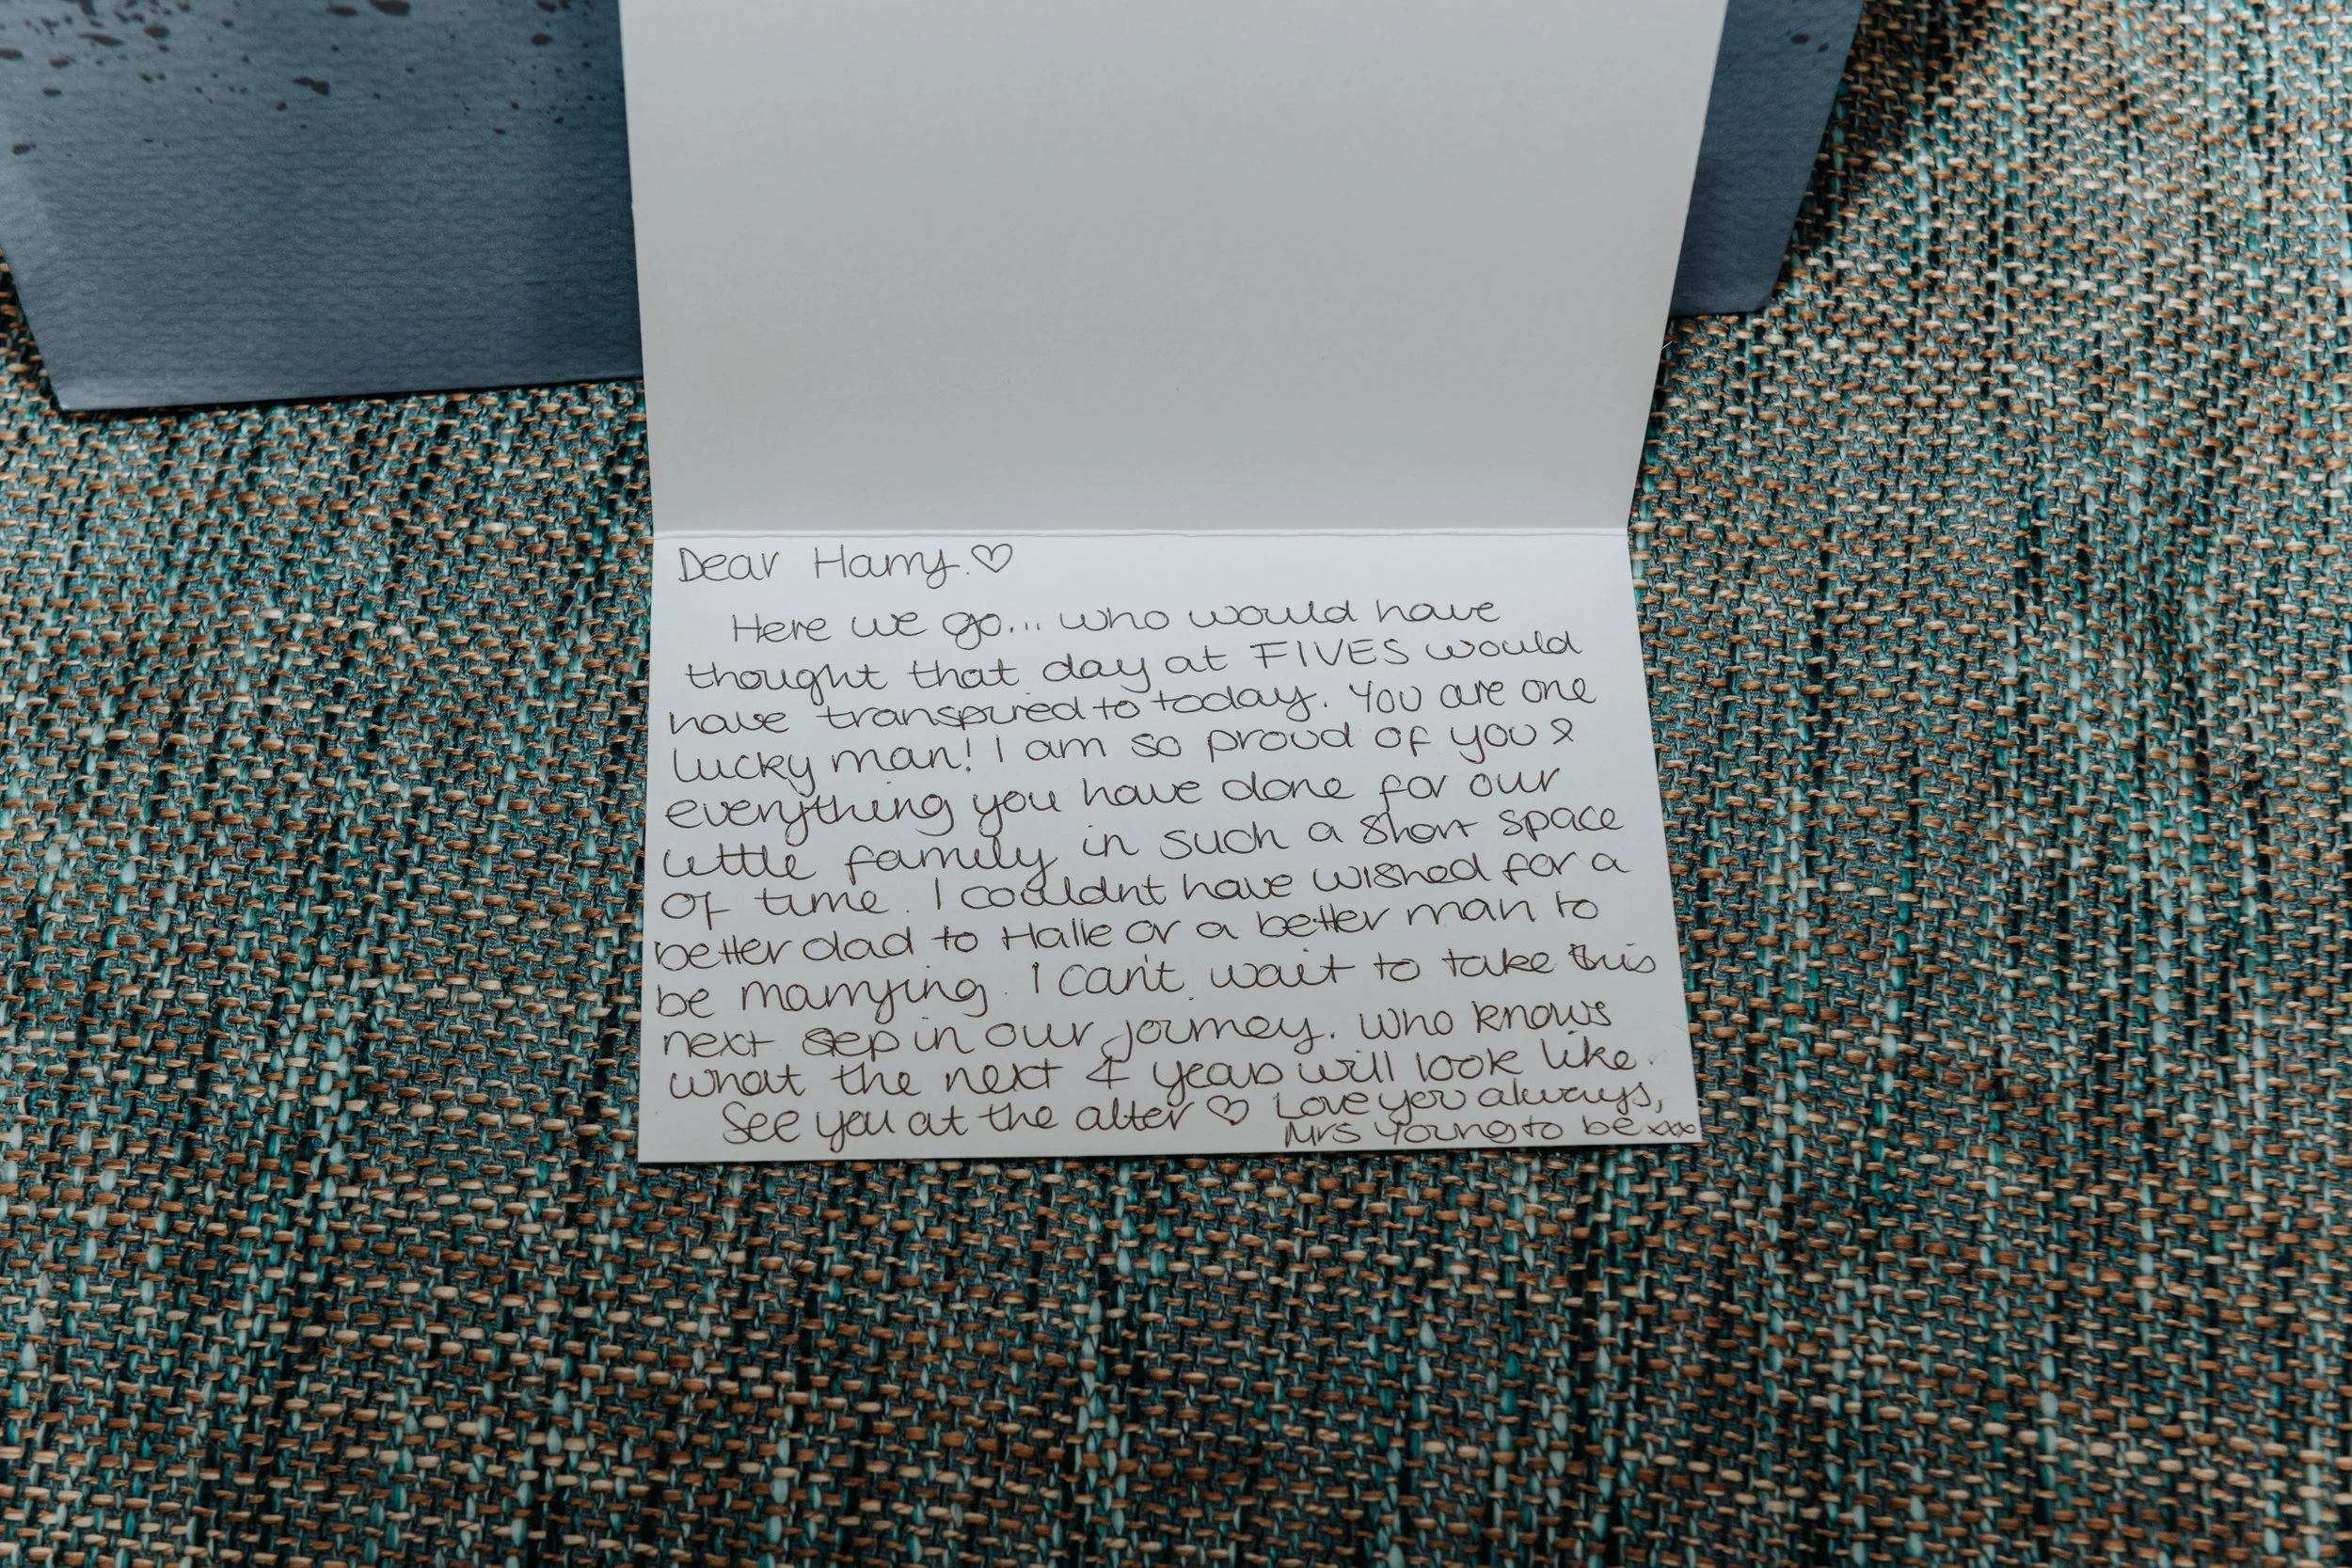 Dear Harry. ♡
Here we go... who would have
thought that day at FIVES would
have transpired to today. You are one
lucky man! I am so proud of you &
everything you have done for our
little family in such a short space
of time. I couldnt have wished for a
better dad to Halle or a better man to
be marrying. I can't wait to take this
next step in our journey. Who knows
what the next 4 years will look like.
See you at the alter ♡ Love you always,
Mrs Young to be xxx